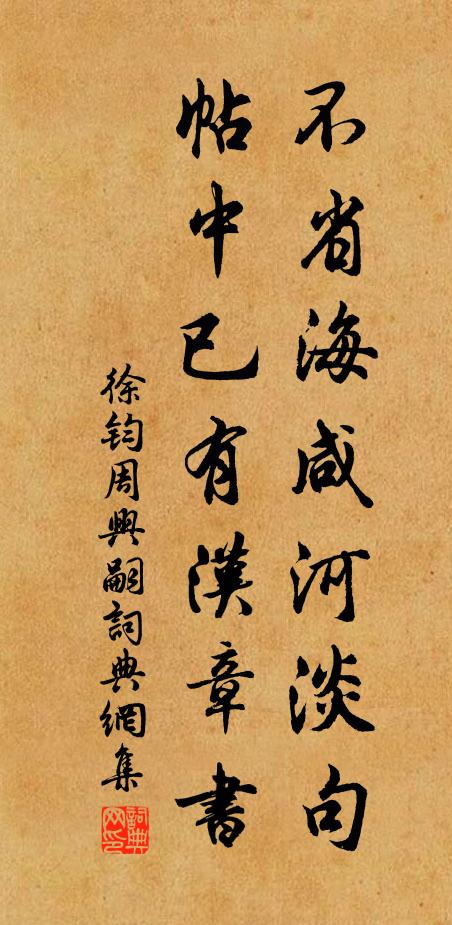 不省海咸河淡句
帖中已有漢章書
徐钧周興嗣詞典網集
詞典网印